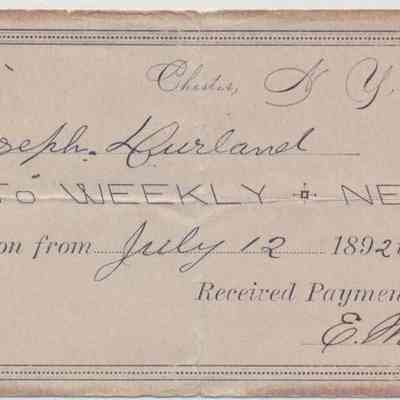 Chester, N Y
seph. Durland
TO WEEKLY NE
on from July 12 1892
Received Paymen
E. M